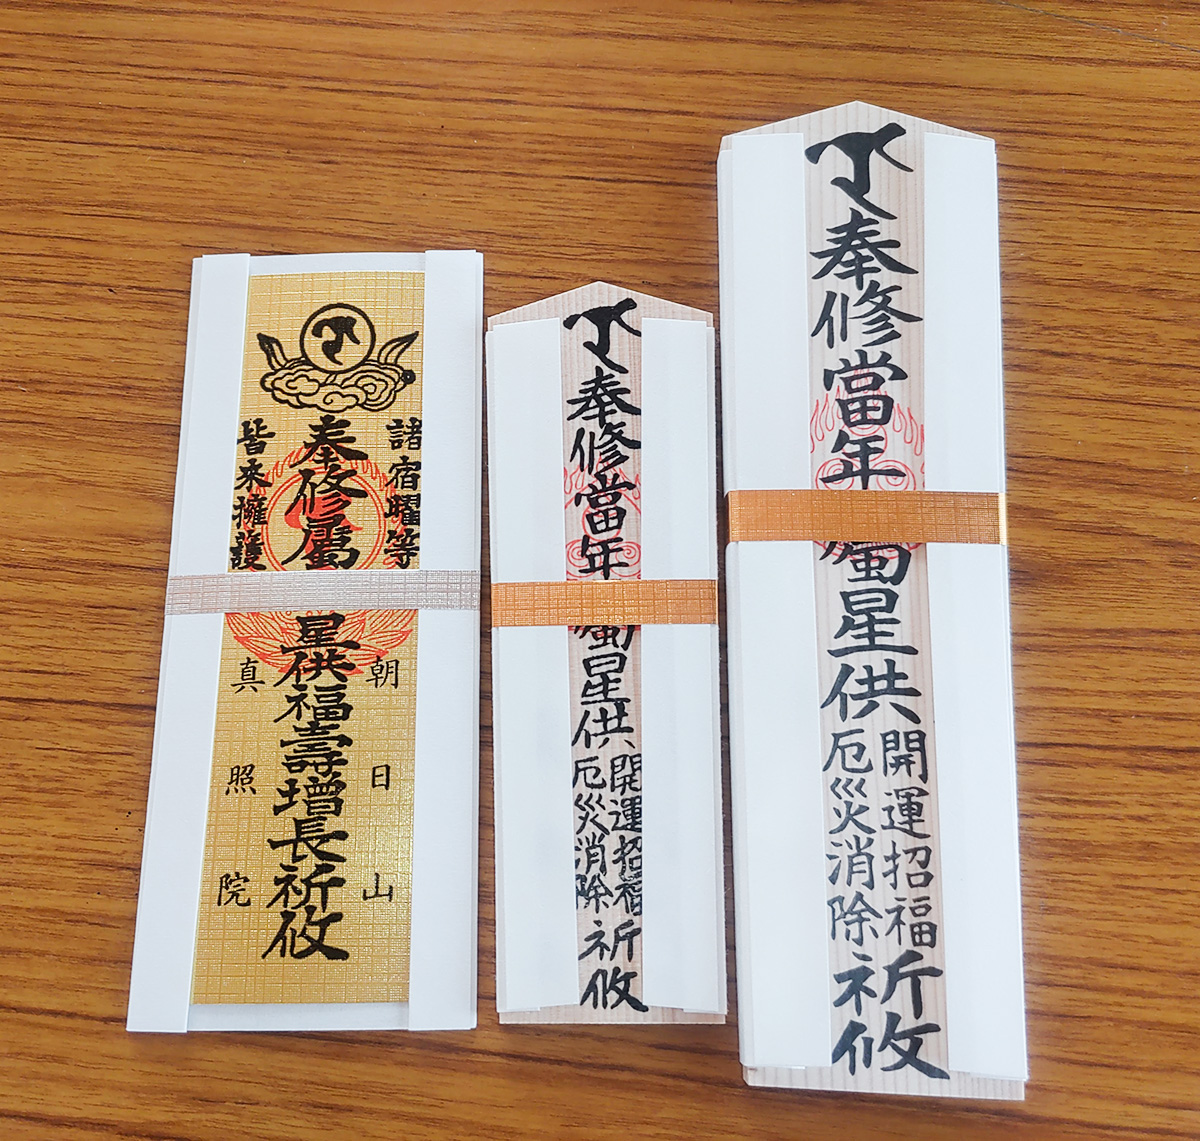 諸宿曜等
奉修屬星供福壽増長祈攸
皆来擁護
朝日山
真照院
奉修當年屬星供
開運招福
厄災消除
祈攸
奉修當年屬星供
開運招福
厄災消除
祈攸